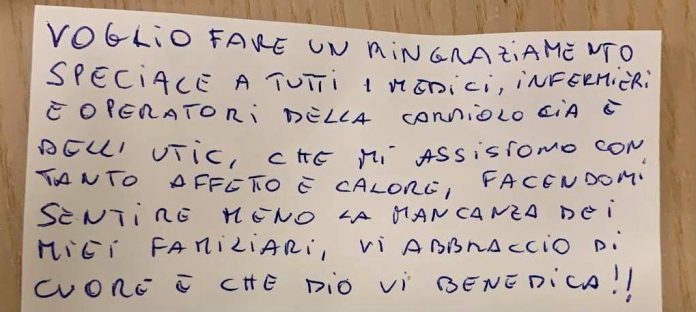 VOGLIO FARE UN RINGRAZIAMENTO
SPECIALE A TUTTI I MEDICI, INFERMIERI
E OPERATORI DELLA CARDIOLOGIA E
DELL'UTIC, CHE MI ASSISTOMO CON
TANTO AFFETO E CALORE, FACENDOMI
SENTIRE MENO LA MANCANZA DEI
MIEI FAMILIARI, VI ABBRACCIO DI
CUORE E CHE DIO VI BENEDICA!!